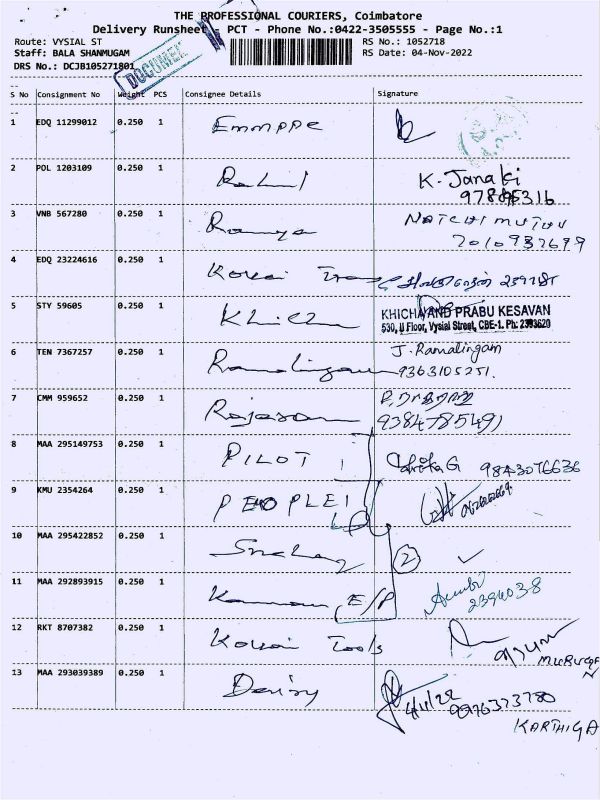 THE PROFESSIONAL COURIERS, Coimbatore
Delivery Runsheet PCT - Phone No.:0422-3505555 - Page No.:1
Route: VYSIAL ST RS No.: 1052718
Staff: BALA SHANMUGAM RS Date: 04-Nov-2022
DRS No.: DCJB105271801
DOCUMENT
S No Consignment No Weight PCS Consignee Details Signature
1 EDQ 11299012 0.250 1 Emmppe
2 POL 1203109 0.250 1 K. Janaki
3 VNB 567280 0.250 1 Ramya NATCHIMUTHU
7010937679
4 EDQ 23224616 0.250 1 Kovai
5 STY 59605 0.250 1 KHICHAYAND PRABU KESAVAN
530, II Floor, Vysial Street, CBE-1. Ph: 2393620
6 TEN 7367257 0.250 1 Ramalingam J. Ramalingam
9363105251.
7 CMM 959652 0.250 1 9384785491
8 MAA 295149753 0.250 1 PILOT 9843076636
9 KMU 2354264 0.250 1
10 MAA 295422852 0.250 1 2
11 MAA 292893915 0.250 1 E/P 2394038
12 RKT 8707382 0.250 1 Kovai Tools
MURUGAN
13 MAA 293039389 0.250 1 4/11/22 9976373780
KARTHIGA